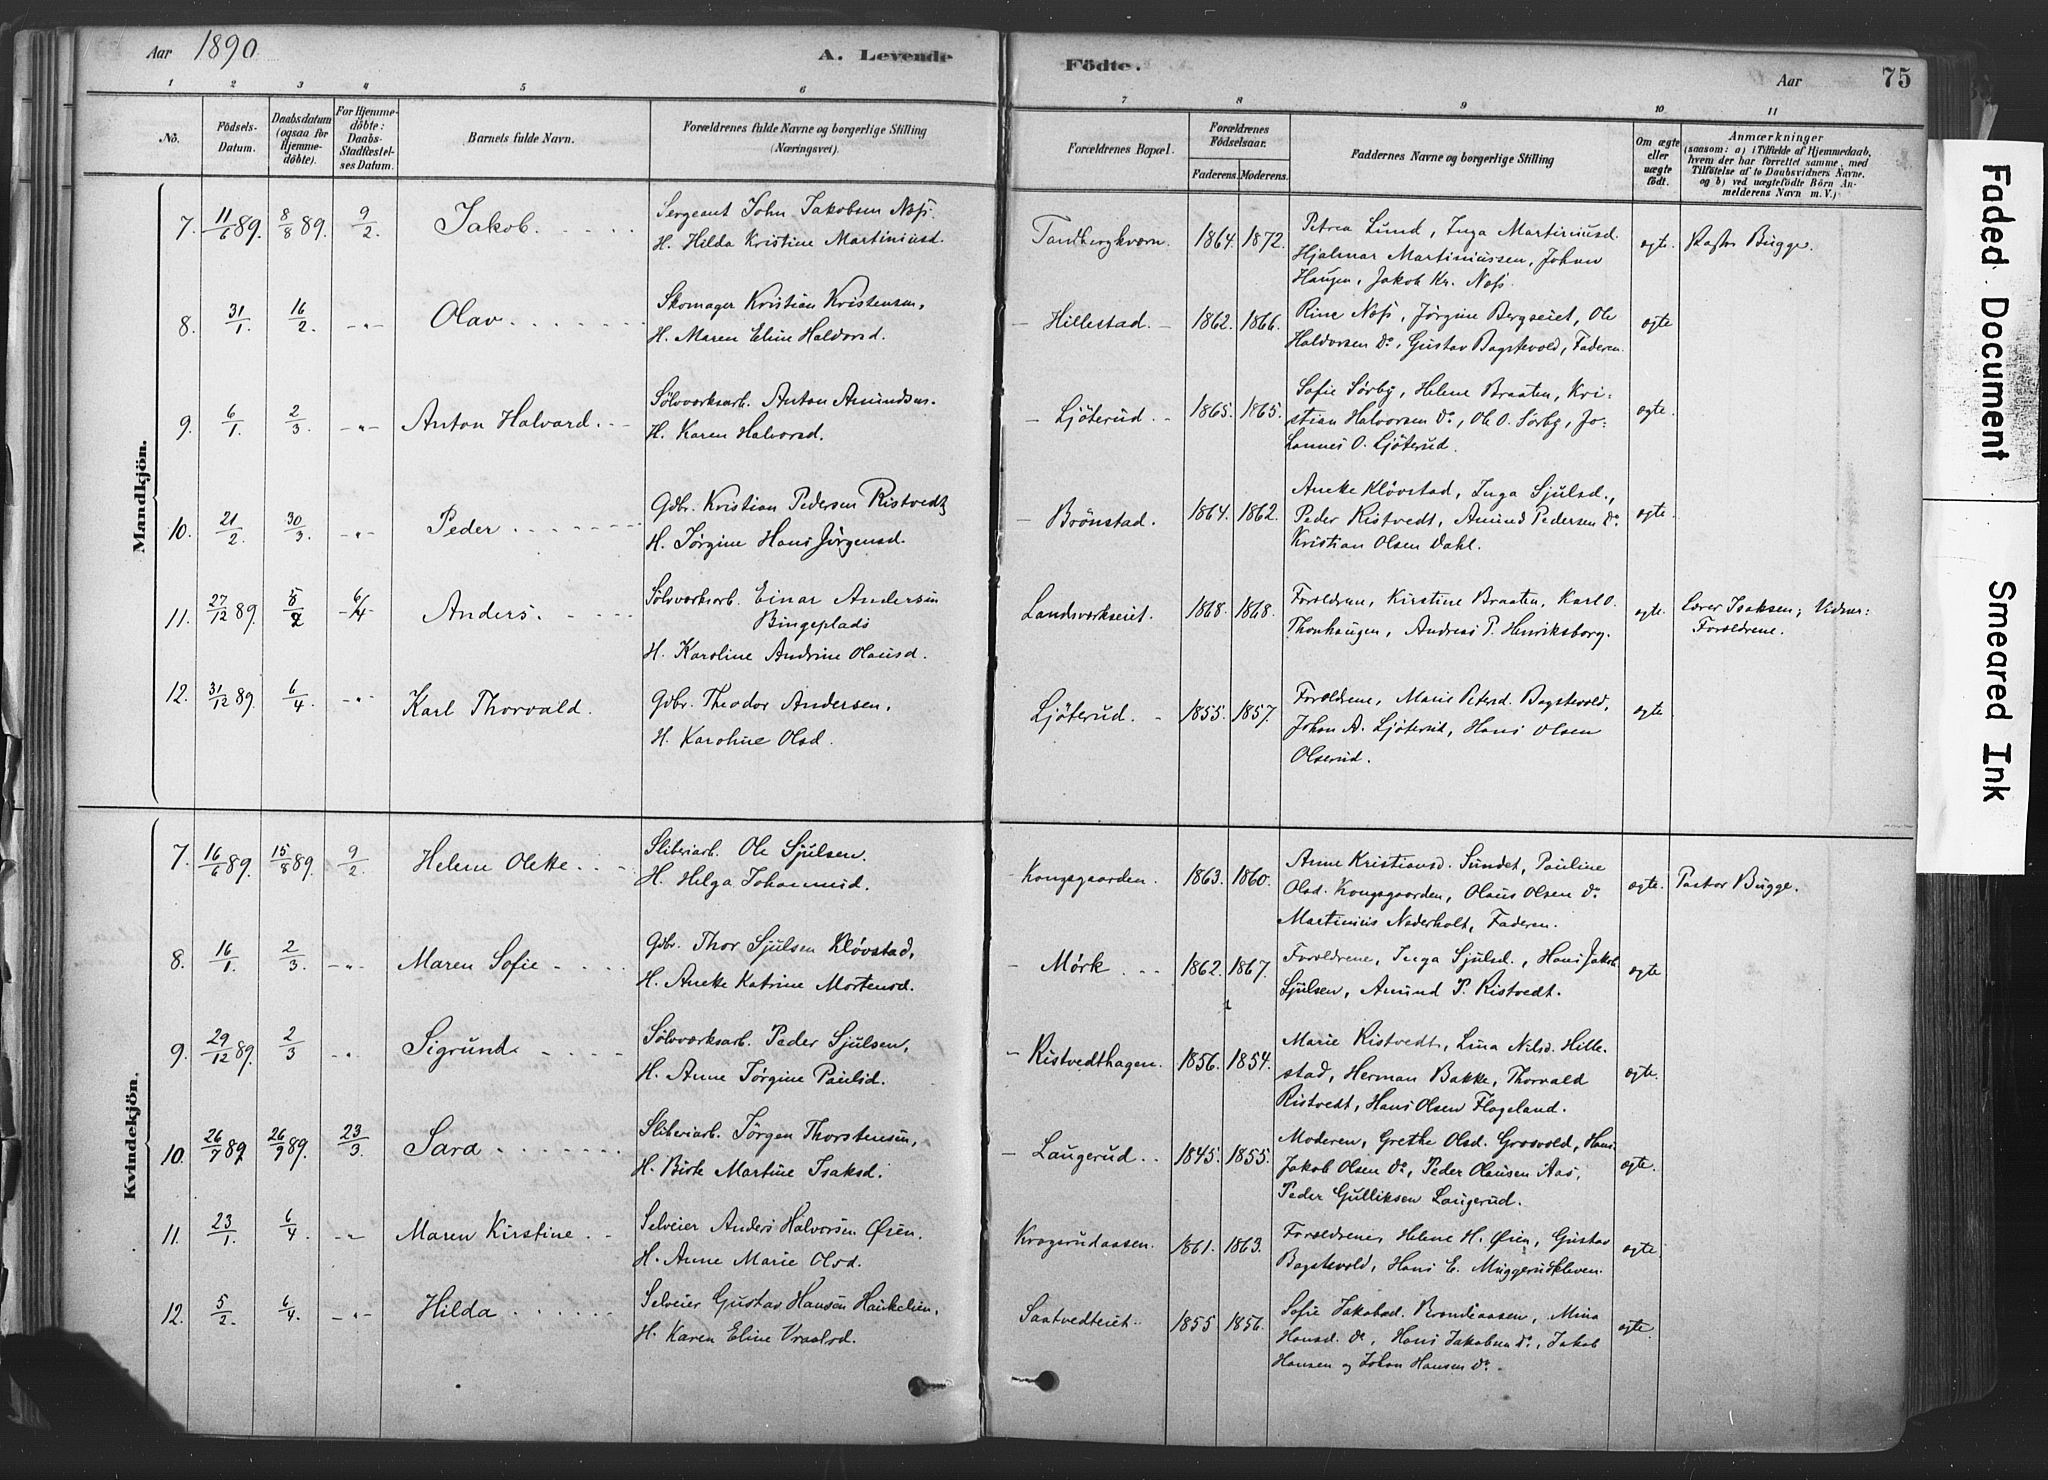 Aar 1890
A. Levende
Födte.
Aar
75
1 2 3 4 5 6 7 8 9 10 11
No.
Födsels-Datum.
Daabsdatum (ogsaa for Hjemmedöbte).
For Hjemmedöbte: Daabs-Stadfæstelses Datum.
Barnets fulde Navn.
Forældrenes fulde Navne og borgerlige Stilling (Næringsvei).
Forældrenes Bopæl.
Forældrenes Födselsaar.
Faderens. Moderens.
Faddernes Navne og borgerlige Stilling
Om ægte eller uægte födt.
Anmærkninger
(saasom: a) i Tilfælde af Hjemmedaab, hvem der har forrettet samme, med Tilföielse af to Daabsvidners Navne, og b) ved uægtefödte Börn Anmelderens Navn m. V.)
Mandkjön.
7. 11/6 89. 8/8 89. 9/2 Jakob.
Sergeant John Jakobsen Næss.
H. Hilda Kristine Martiniusd.
Tandbergkværn. 1864. 1872.
Petrea Lund, Inga Martiniusd.
Hjalmar Martiniussen, Johan
Haugen, Jakob Kr. Næss.
ægte. Pastor Bugge.
8. 31/1. 16/2. -"- Olav
Skomager Kristian Kristensen,
H. Maren Eline Haldorsd.
Hillestad. 1862. 1866.
Rine Næss, Jørgine Bergseiet, Ole
Haldorsen do, Gustav Bagstevold, Faderen.
ægte
9. 6/1. 2/3. -"- Anton Halvard.
Sølvværksarb. Anton Amundsen.
H. Karen Halvorsd.
Ljöterud. 1865. 1865.
Sofie Sørby, Helene Braaten, Kri-
stian Halvorsen do, Ole O. Sørby, Jo-
hannes O. Ljöterud.
ægte.
10. 21/2. 30/3. -"- Peder
Gdbr. Kristian Pedersen Ristvedt
H. Jørgine Hans Jørgensd.
Brönstad. 1864. 1862.
Anette Kløvstad, Inga Sjulsd.,
Peder Ristvedt, Amund Pedersen do
Kristian Olsen Dahl.
ægte.
11. 27/12 89. 6/4 Anders.
Sølvværksarb. Einar Andersen
Bingeplads
H. Karoline Andrine Olausd.
Landsverkseiet. 1868. 1868.
Forældrene, Kirstine Braaten, Karl O.
Thonhaugen, Andreas P. Henriksborg.
ægte. Lærer Isaksen; Vidner:
Forældrene.
12. 31/12 89. 6/4. -"- Karl Thorvald.
Gdbr. Theodor Andersen,
H. Karoline Olsd.
Ljöterud. 1855. 1857.
Forældrene, Marie Petersd. Bagstevold,
Johan A. Ljöterud, Hans Olsen
Olserud.
ægte
Kvindekjön.
7. 16/6 89. 15/8 89. 9/2 Helene Olette
Sliberiarb. Ole Sjulsen.
H. Helga Johannesd.
Kongsgaarden. 1863. 1860.
Anne Kristiansd. Sundet, Pauline
Olsd. Kongsgaarden, Olaus Olsen do
Martinius Nederholt, Faderen.
ægte. Pastor Bugge.
8. 16/1. 2/3. -"- Maren Sofie
Gdbr. Thor Sjulsen Kløvstad,
H. Anette Katrine Mortensd.
Mørk 1862. 1867.
Forældrene, Inga Sjulsd., Hans Jakob
Sjulsen, Amund P. Ristvedt.
ægte
9. 29/12 89. 2/3 -"- Sigrund
Sølvværksarb. Peder Sjulsen,
H. Anne Jørgine Paulsd.
Ristvedthagen. 1856. 1854.
Marie Ristvedt, Lina Nilsd. Hille-
stad, Herman Bakke, Thorvald
Ristvedt, Hans Olsen Flageland.
ægte.
10. 26/7 89 26/9 89. 23/3. Sara
Sliberiarb. Jørgen Thorstensen,
H. Birte Martine Isaksd.
Laugerud. 1845. 1855.
Moderen, Grethe Olsd. Grosvold, Hans
Jakob Olsen do, Peder Olausen Aas,
Peder Gulliksen Laugerud.
ægte.
11. 23/1. 6/4. -"- Maren Kirstine.
Selveier Anders Halvorsen Øien.
H. Anne Marie Olsd.
Kragerudaasen. 1861. 1863.
Forældrene, Helene H. Øien, Gustav
Bagstevold, Hans E. Muggerudkleven.
ægte
12. 5/2. 6/4. -"- Hilda
Selveier Gustav Hansen Haukelien,
H. Karen Eline Vraalsd.
Saatvedteiet. 1855 1856.
Sofie Jakobsd. Brændeaasen, Mina
Hansd. do, Hans Jakobsen do, Jakob
Hansen og Johan Hansen do.
ægte.
Faded Document
Smeared Ink